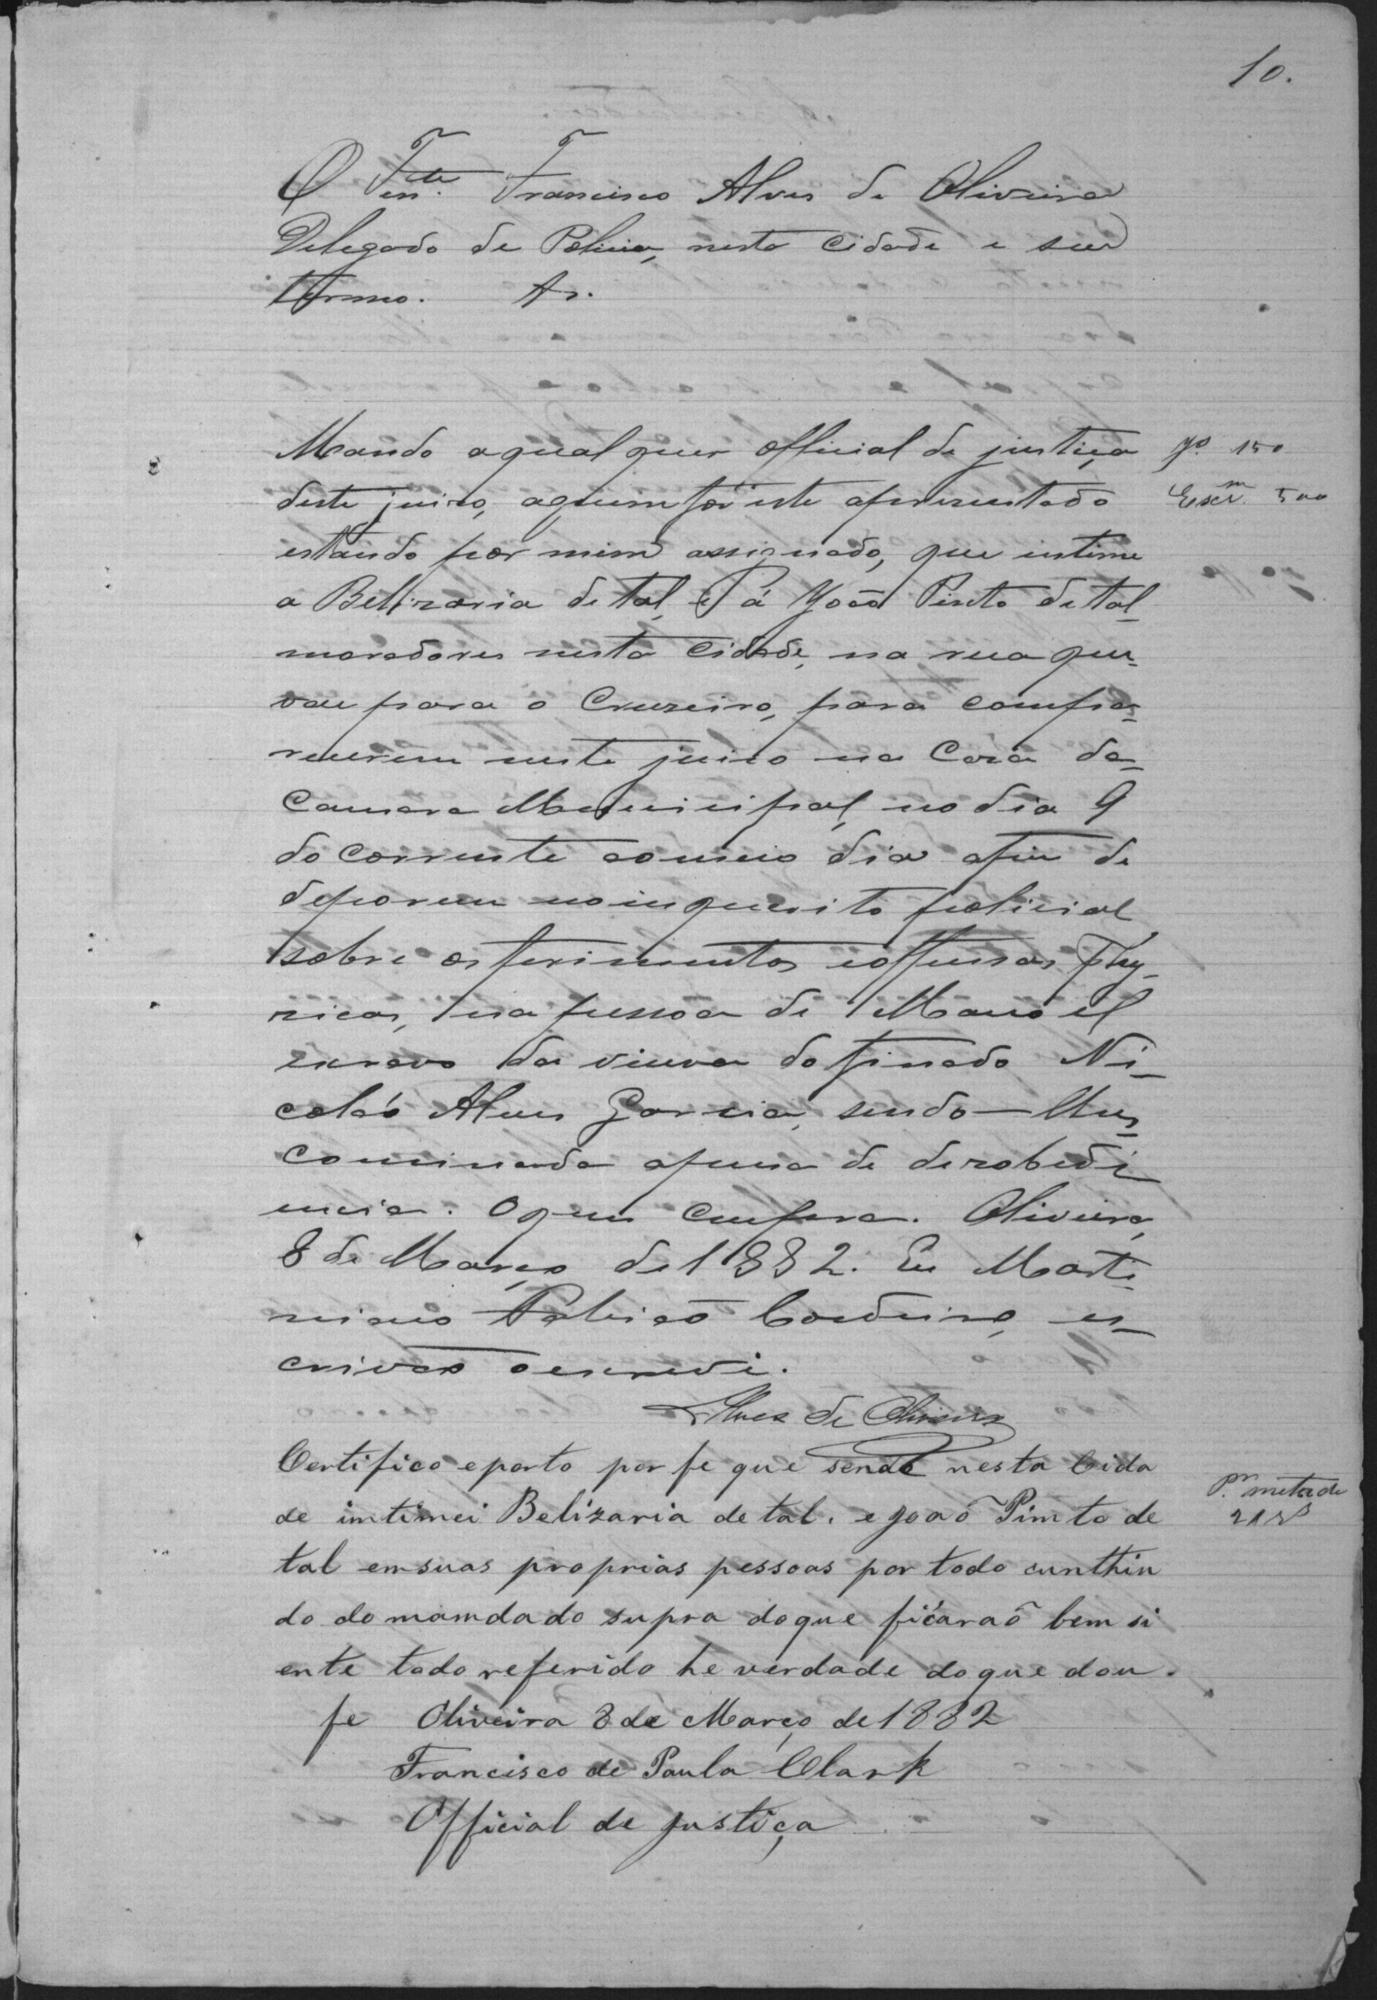 10.
O Ten.te Francisco Alves de Oliveira
Delegado de Policia, nesta cidade e seu
termo. &.
Mando aqual quer official de justiça
deste juizo, aquem fôr este aprezentado
estando por mim assignado, que intime
a Belizaria de tal, e á João Pinto de tal
moradores nesta Cidade, na rua que
vae para o Cruzeiro, para compa-
recerem neste juizo na Caza da
Camara Municipal, no dia 9
do corrente ao meio dia afim de
deporem no inquerito policial
sobre os ferimentos e offensas phy-
zicas, na pessoa de Manoel
escravo da viuva do finado Ni-
coláo Alves Garcia, sendo-lhes
cominada a pena de dezobedi
encia. O que cumpra. Oliveira,
8 de Março de 1882. Eu Marti-
niano Cordeiro, es-
crivão o escrevi.
Alves de Oliveira
Certifico eporto por fe que sendo nesta Cida
de imtimei Belizaria de tal. e João Pimto de
tal em suas proprias pessoas por todo cunthiu
do do mamdado supra doque ficaraõ bem si
ente todo referido he verdade do que dou.
fe Oliveira 8 de Março de 1882
Francisco de Paula Clark
Official de justiça
Jº. 150
Escr.m 500
P.r metade